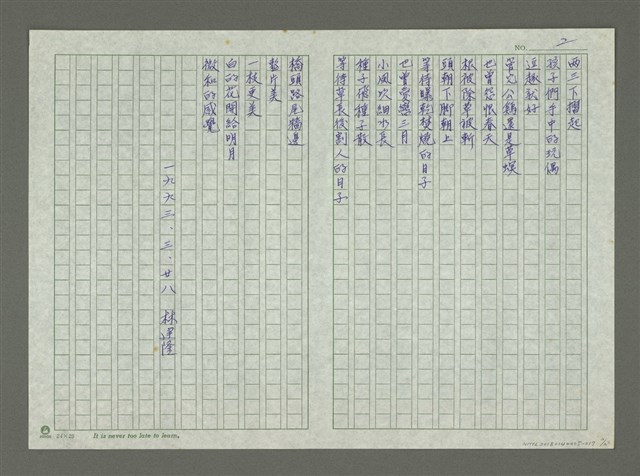 NO. 2
兩三下摺起
孩子們手中的玩偶
逗趣就好
管它公鷄還是草蜢
也曾從恨春天
根被除草被斬
頭朝下脚朝上
等待曝乾焚燒的日子
也曾愛戀三月
小風吹細水長
種子傳種子散
等待草長後割人的日子
橋頭路尾牆邊
整片美
一枝更美
白的花開給明月
微和的感覺
一九九三、三、廿八 林運隆
24×25 It is never too late to learn.